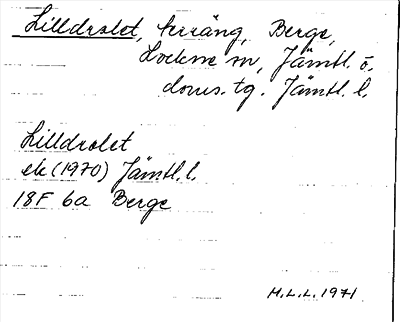 Lilldralet, terräng, Berge,
Lockne sn, Jämtl. ö.
doms. tg. Jämtl. l.
Lilldralet
ek (1970) Jämtl. l.
18F 6a Berge
H.L.L. 1971